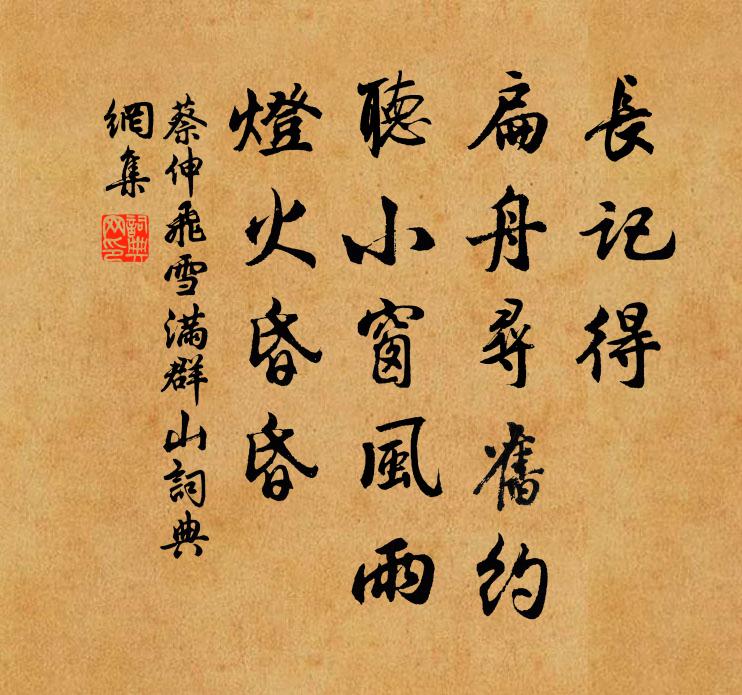 長記得
扁舟尋舊約
聽小窗風雨
燈火昏昏
蔡伸飛雪滿群山詞典
網集
詞典網印